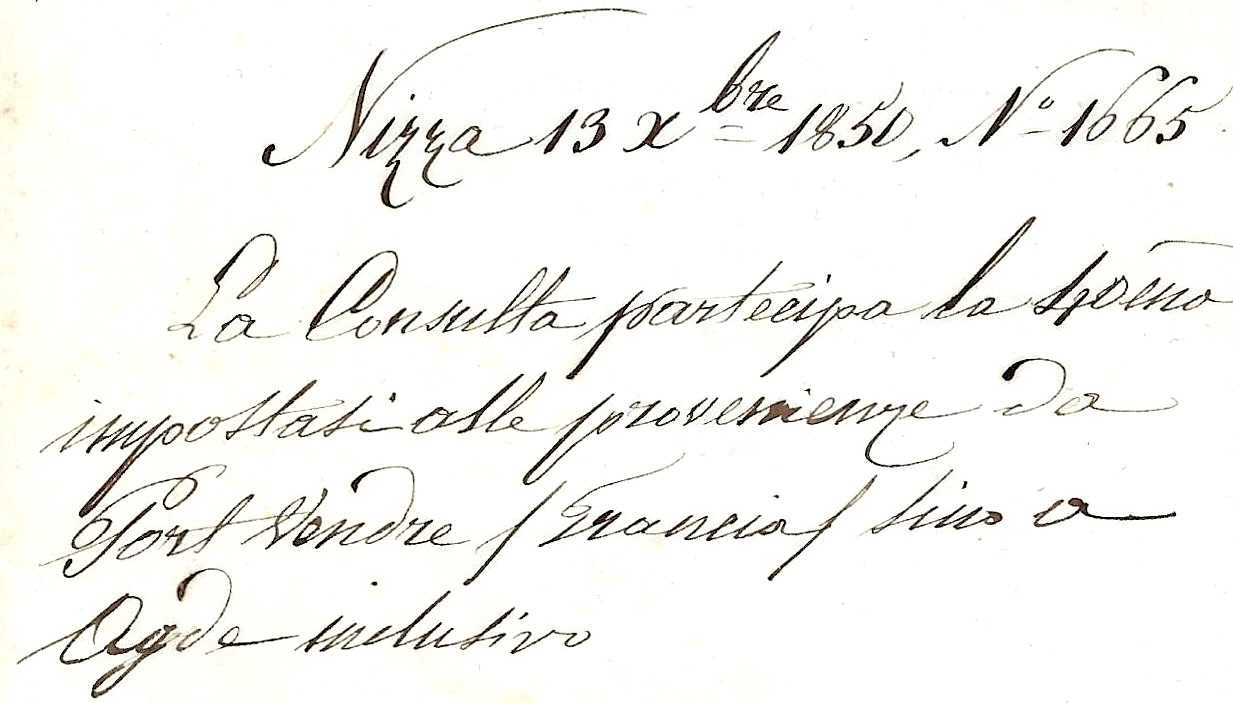 Nizza 13 Xbre 1850, No 1665
La Consulta partecipa la 40ena
impostasi alle provenienze da
Port Vendre /Francia/ sino a
Agde inclusivo